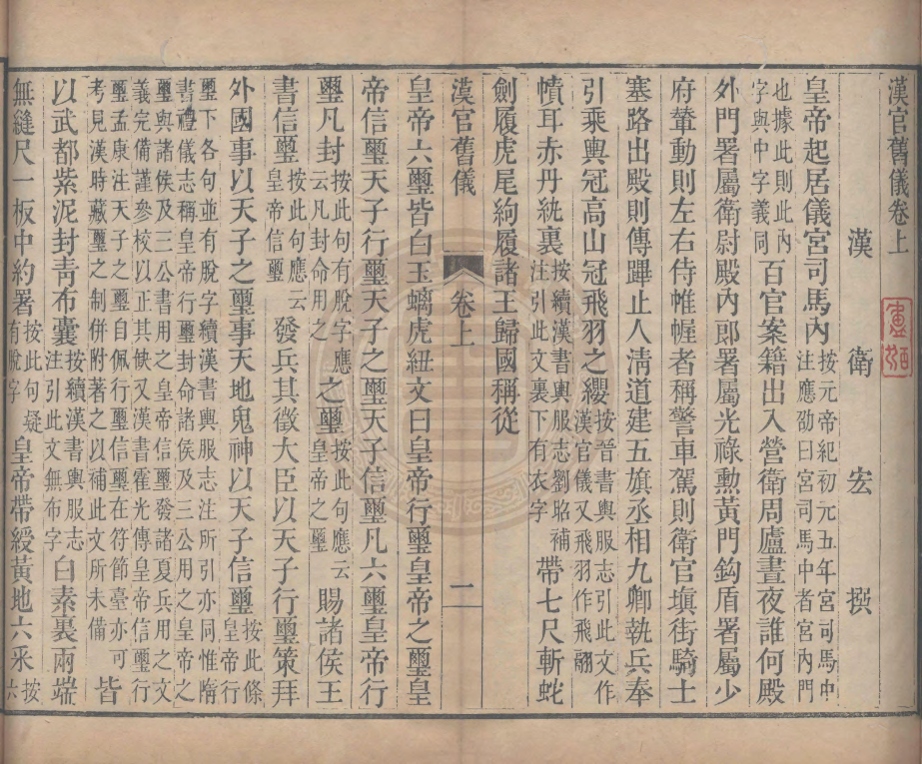 漢官舊儀卷上
漢衛宏撰
皇帝起居儀宮司馬內按元帝紀初元五年宮司馬中注應劭曰宮司馬中者宮內門
也據此則此內字與中字義同百官案籍出入營衛周廬晝夜誰何殿
外門署屬衛尉殿內郎署屬光祿勲黃門鈎盾署屬少
府輦動則左右侍帷幄者稱警車駕則衛官塡街騎士
塞路出殿則傳蹕止人淸道建五旗丞相九卿執兵奉
引乘輿冠高山冠飛羽之纓按晉書輿服志引此文作漢官儀又飛羽作飛翮
幘耳赤丹紈裏按續漢書輿服志劉昭補注引此文裏下有衣字帶七尺斬蛇
劍履虎尾絢履諸王歸國稱從
漢官舊儀 卷上 一
皇帝六璽皆白玉螭虎紐文曰皇帝行璽皇帝之璽皇
帝信璽天子行璽天子之璽天子信璽凡六璽皇帝行
璽凡封按此句有脫字應云凡封命用之之璽按此句應云皇帝之璽賜諸侯王
書信璽按此句應云皇帝信璽發兵其徵大臣以天子行璽策拜
外國事以天子之璽事天地鬼神以天子信璽按此條皇帝行
璽下各句並有脫字續漢書輿服志注所引亦同惟隋書禮儀志稱皇帝行璽封命諸侯及三公用之皇帝之
璽與諸侯及三公書用之皇帝信璽發諸夏兵用之文義完備謹參校以正其缺又漢書霍光傳皇帝信璽行
璽孟康注天子之璽自佩行璽信璽在符節臺亦可考見漢時藏璽之制併附著之以補此文所未備皆
以武都紫泥封靑布囊按續漢書輿服志注引此文無布字白素裏兩端
無縫尺一板中約署按此句疑有脫字皇帝帶綬黃地六采按六